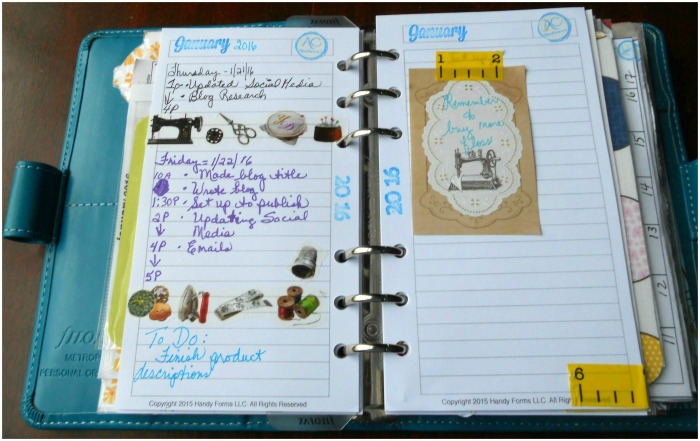 January 2016
AC
Thursday - 1/21/16
To • Updated Social Media
↓ • Blog Research
4P
Friday - 1/22/16
10A • Made blog title
• Wrote blog
1:30P • Set up to publish
2P • Updating Social
↓ Media
4P • Emails
↓
5P
To Do:
Finish product
descriptions
Copyright 2015 Handy Forms LLC. All Rights Reserved
2016
January
AC
1 2
Remember
to
buy more
floss
2016
6
Copyright 2015 Handy Forms LLC. All Rights Reserved
filofax
METRO
PERSONAL OR
16/17
15
14
13
12
11